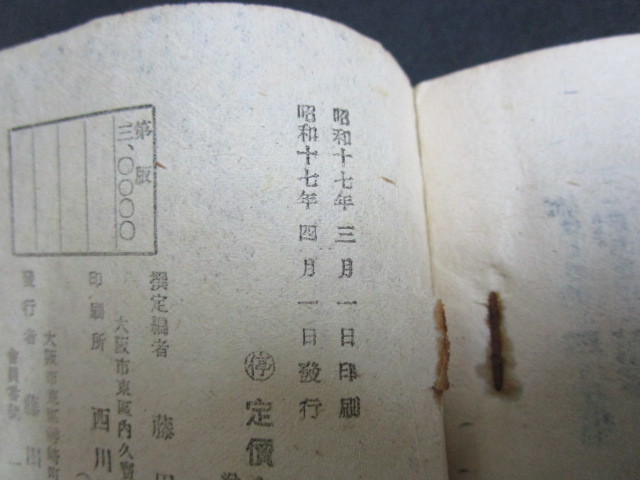 昭和十七年三月一日印刷
昭和十七年四月一日發行
㊡定價
撰定編者 藤田
大阪市東區內久寶
印刷所 西川
大阪市東區
發行者 藤田
第 版
三、〇〇〇〇